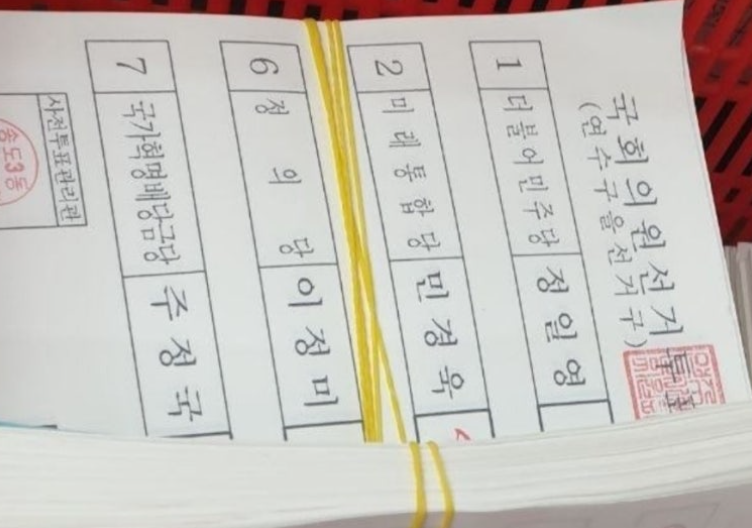 국회의원선거 투표
(연수구을선거구)
1 더불어민주당 정일영
2 미래통합당 민경욱
6 정의당 이정미
7 국가혁명배당금당 주정국
사전투표관리관
송도3동